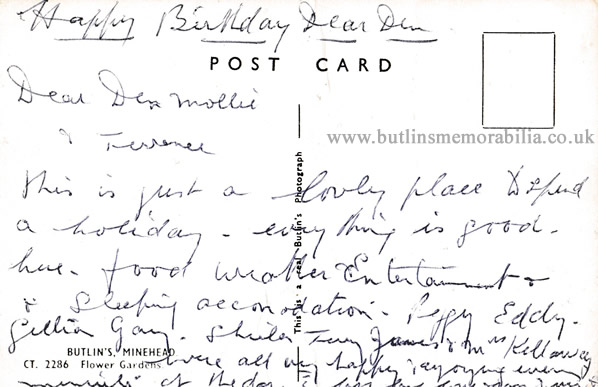 Happy Birthday Dear Den
POST CARD
Dear Den Mollie
& Terrence
www.butlinsmemorabilia.co.uk
This is just a lovly place to spend
a holiday - everything is good.
here. food weather Entertainment &
& Sleeping accomodation. Peggy Eddy.
Gillian Gary. Sheila Terry James & Mrs Kellaway
This is a real Butlin's Photograph
BUTLIN'S, MINEHEAD
CT. 2286 Flower Gardens
were all very happy & enjoying every
of the day